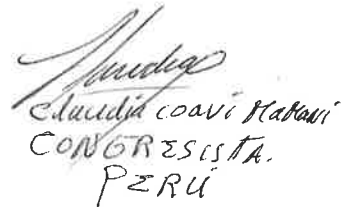 Claudia coavi Mamani
CONGRESISTA.
PERÚ